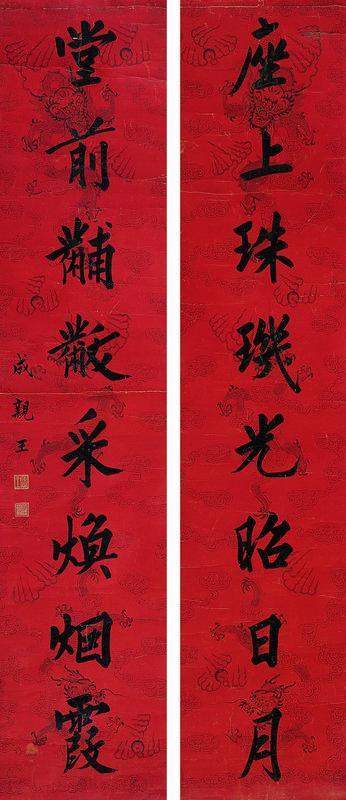 座上珠璣光昭日月
堂前黼黻采煥烟霞
成親王